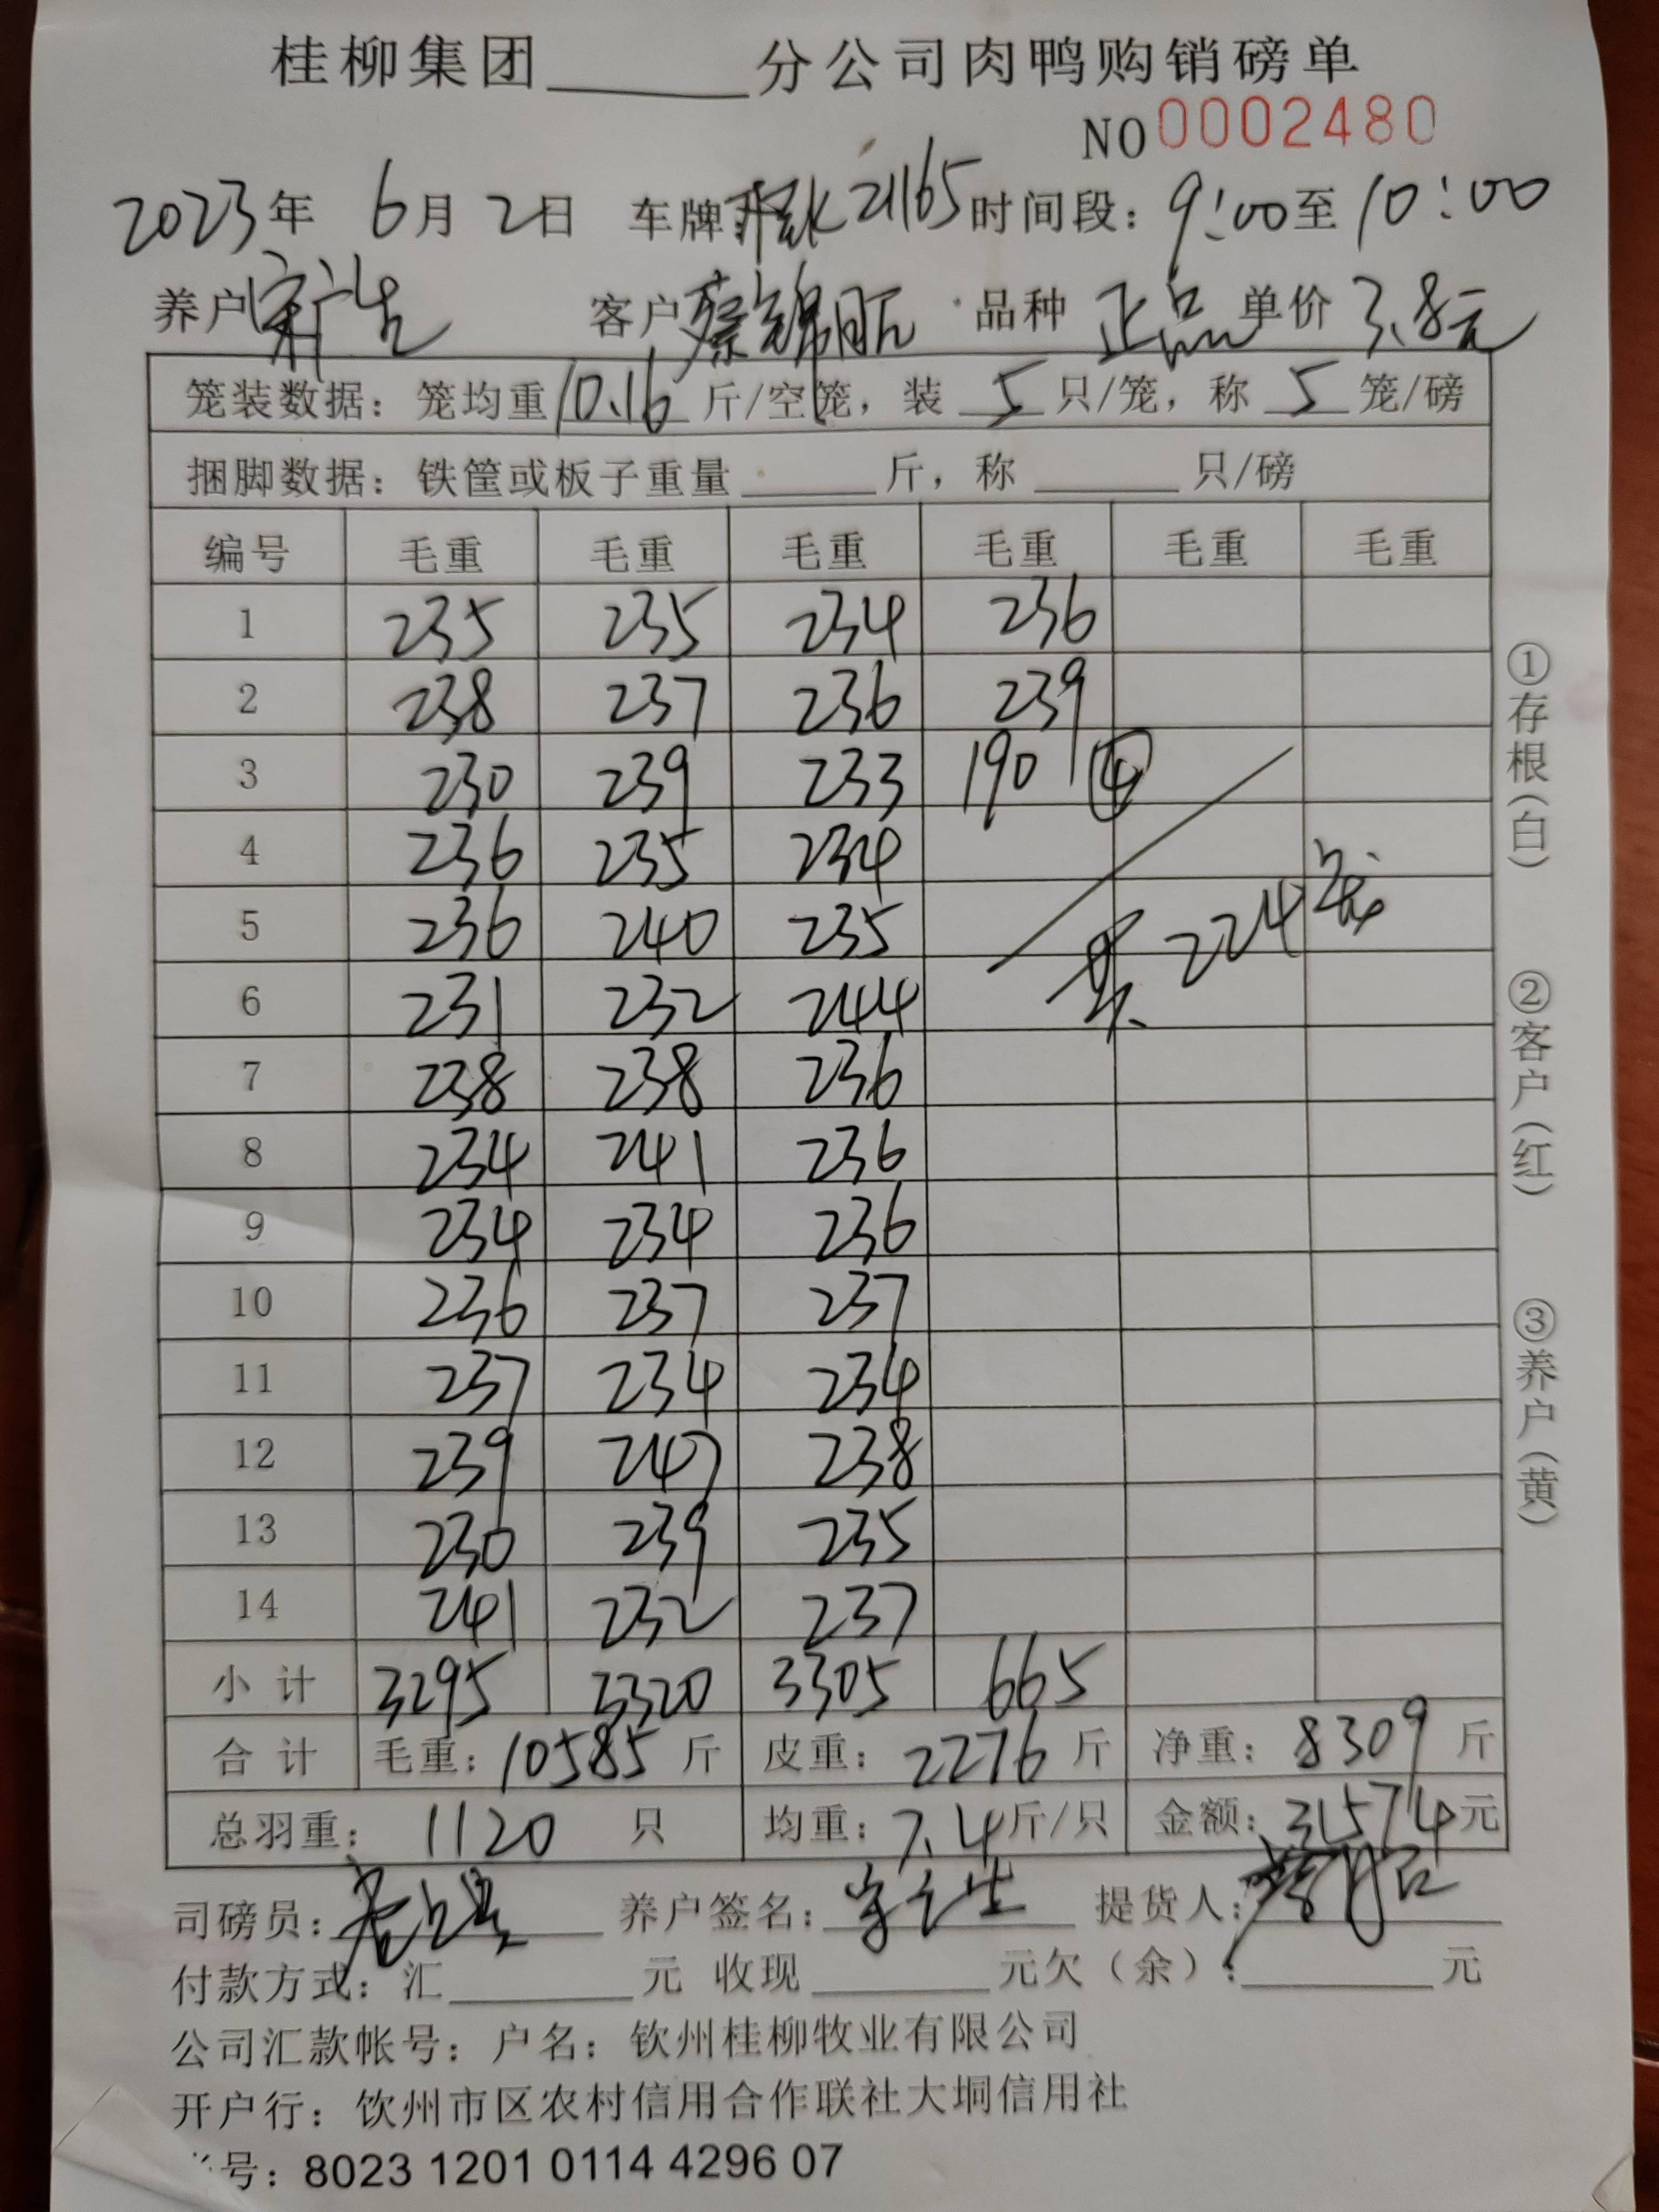 桂柳集团______分公司肉鸭购销磅单
NO 0002480
2023年 6月 2日 车牌 21165 时间段：9:00至10:00
养户 客户 蔡锦 品种 正品 单价 3.8元
笼装数据：笼均重10.16斤/空笼，装 5 只/笼，称 5 笼/磅
捆脚数据：铁筐或板子重量______斤，称______只/磅
编号 毛重 毛重 毛重 毛重 毛重 毛重
1 235 235 234 236
2 238 237 236 239
3 230 239 233 190 ④
4 236 235 234
5 236 240 235
224笼
6 231 232 244
7 238 238 236
8 234 241 236
9 234 234 236
10 236 237 237
11 237 234 234
12 239 247 238
13 230 239 235
14 241 232 237
小计 3295 3320 3305 665
合计 毛重：10585斤 皮重：2276斤 净重：8309斤
总羽重：1120 只 均重：7.4斤/只 金额：31574元
司磅员： 养户签名： 提货人：
付款方式：汇______元 收现______元欠（余）：______元
公司汇款帐号：户名：钦州桂柳牧业有限公司
开户行：饮州市区农村信用合作联社大垌信用社
号：8023 1201 0114 4296 07
①存根（白）
②客户（红）
③养户（黄）